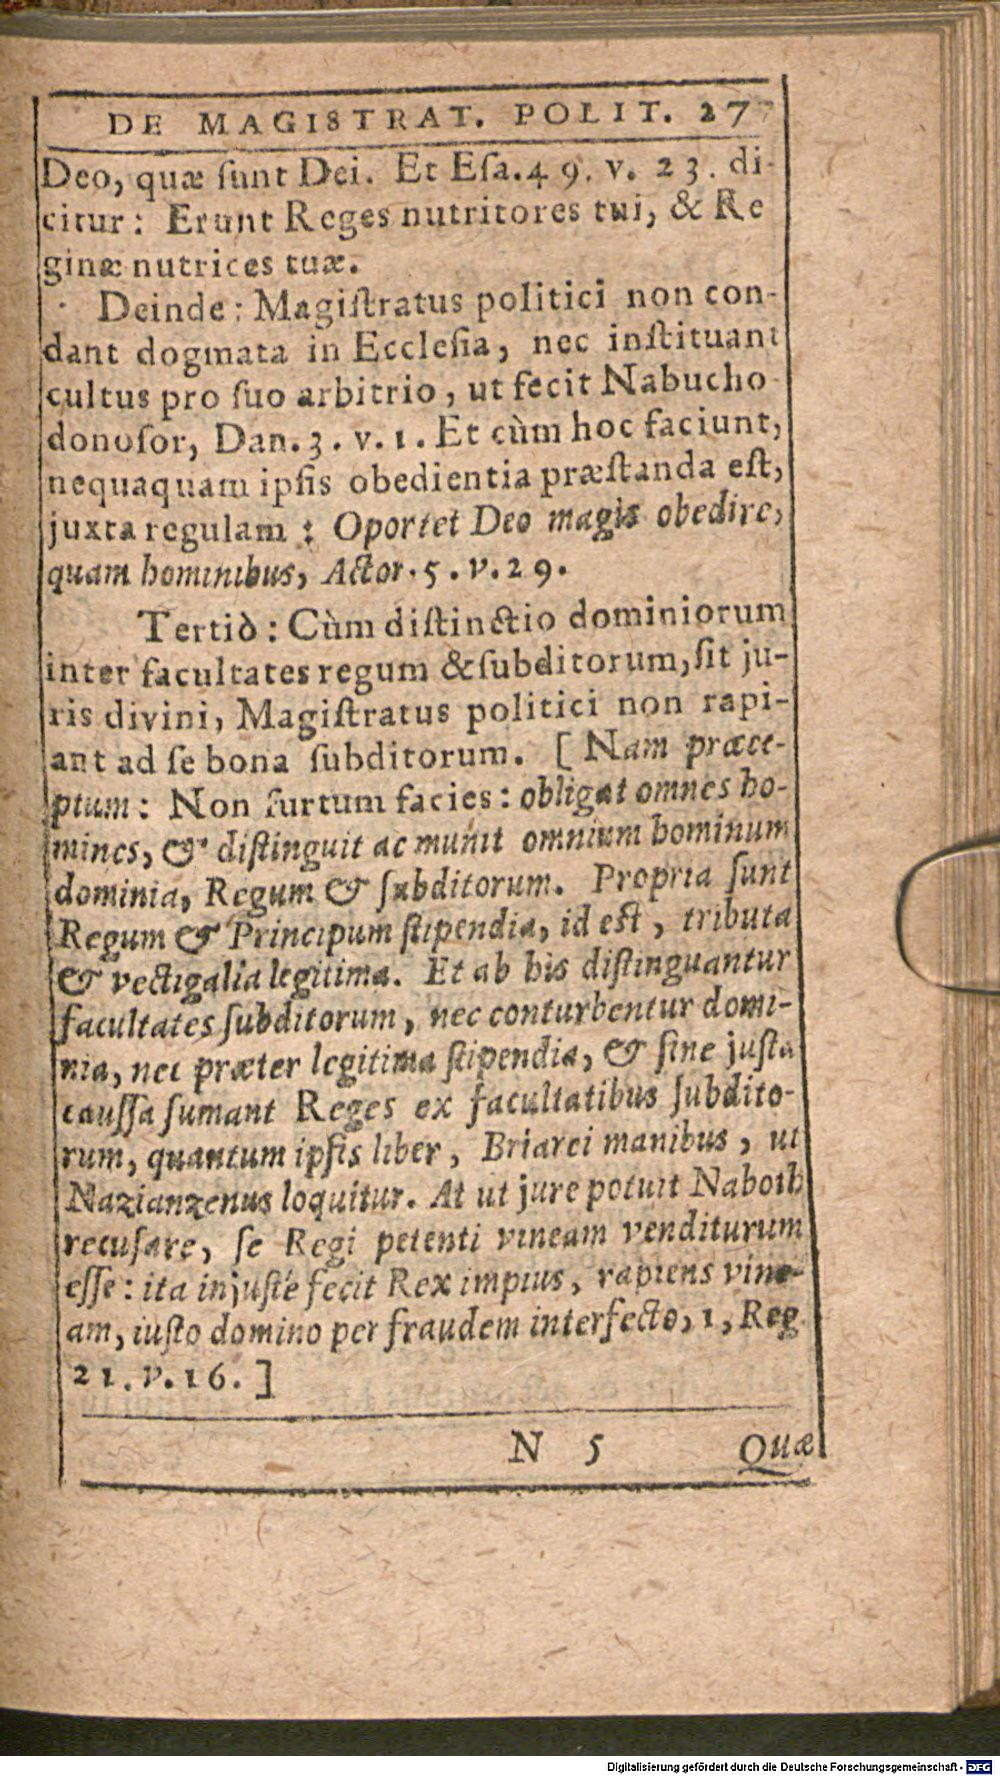 DE MAGISTRAT. POLIT. 277
Deo, quæ ſunt Dei. Et Eſa. 49. v. 23. di-
citur: Erunt Reges nutritores tui, & Re
ginæ nutrices tuæ.
Deinde: Magiſtratus politici non con-
dant dogmata in Eccleſia, nec inſtituant
cultus pro ſuo arbitrio, ut fecit Nabucho-
donoſor, Dan. 3. v. 1. Et cùm hoc faciunt,
nequaquam ipſis obedientia præſtanda eſt,
juxta regulam: Oportet Deo magis obedire,
quam hominibus, Actor. 5. v. 29.
Tertiò: Cùm diſtinctio dominiorum
inter facultates regum & ſubditorum, ſit ju-
ris divini, Magiſtratus politici non rapi-
ant ad ſe bona ſubditorum. [Nam præce-
ptum: Non furtum facies: obligat omnes ho-
mines, & diſtinguit ac munit omnium hominum
dominia, Regum & ſubditorum. Propria ſunt
Regum & Principum ſtipendia, id eſt, tributa
& vectigalia legitima. Et ab his diſtinguantur
facultates ſubditorum, nec conturbentur domi-
nia, nec præter legitima ſtipendia, & ſine juſta
cauſſa ſumant Reges ex facultatibus ſubdito-
rum, quantum ipſis liber, Briarei manibus, ut
Nazianzenus loquitur. At ut jure potuit Naboth
recuſare, ſe Regi petenti vineam venditurum
eſſe: ita injuſtè fecit Rex impius, rapiens vine-
am, iuſto domino per fraudem interfecto, 1, Reg.
21. v. 16.]
N 5 Quæ
Digitalisierung gefördert durch die Deutsche Forschungsgemeinschaft - DFG